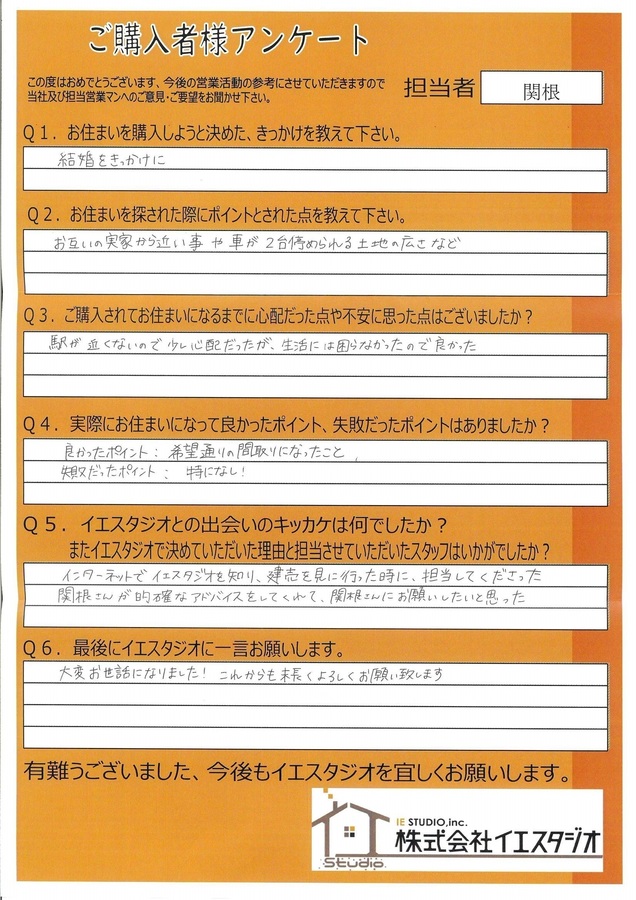 ご購入者様アンケート
この度はおめでとうございます、今後の営業活動の参考にさせていただきますので
当社及び担当営業マンへのご意見・ご要望をお聞かせ下さい。
担当者
関根
Q1．お住まいを購入しようと決めた、きっかけを教えて下さい。
結婚をきっかけに
Q2．お住まいを探された際にポイントとされた点を教えて下さい。
お互いの実家から近い事や車が2台停められる土地の広さなど
Q3．ご購入されてお住まいになるまでに心配だった点や不安に思った点はございましたか？
駅が近くないので少し心配だったが、生活には困らなかったので良かった
Q4．実際にお住まいになって良かったポイント、失敗だったポイントはありましたか？
良かったポイント：希望通りの間取りになったこと、
失敗だったポイント：特になし！
Q5．イエスタジオとの出会いのキッカケは何でしたか？
またイエスタジオで決めていただいた理由と担当させていただいたスタッフはいかがでしたか？
インターネットでイエスタジオを知り、建売を見に行った時に、担当してくださった
関根さんが的確なアドバイスをしてくれて、関根さんにお願いしたいと思った
Q6．最後にイエスタジオに一言お願いします。
大変お世話になりました！これからも末長くよろしくお願い致します
有難うございました、今後もイエスタジオを宜しくお願いします。
IE STUDIO,inc.
株式会社イエスタジオ
Studio